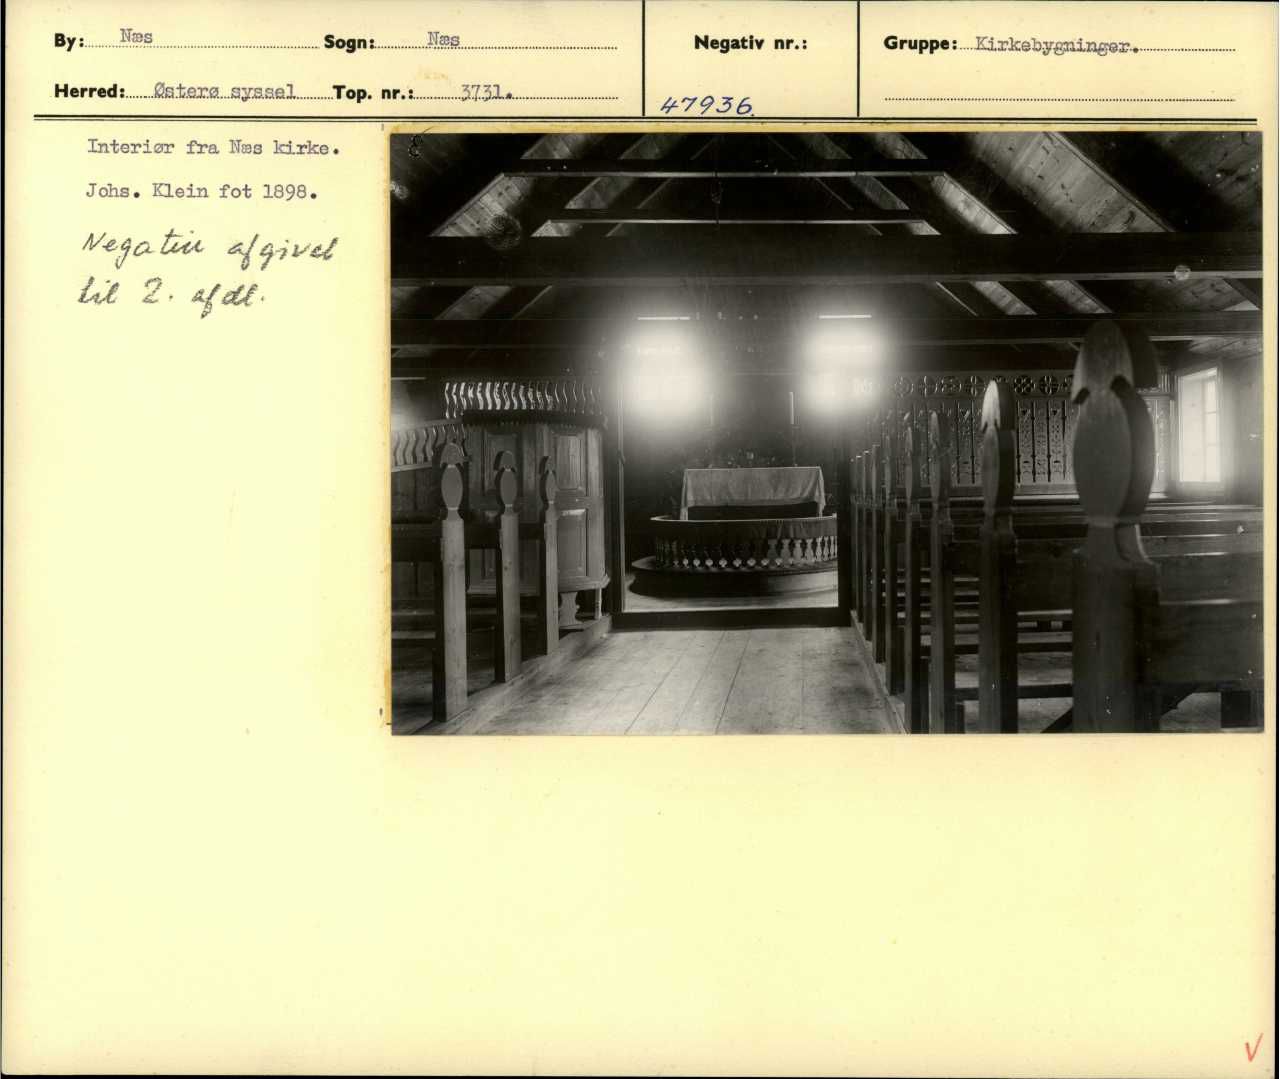 By: Næs Sogn: Næs Negativ nr.: Gruppe: Kirkebygninger.
Herred: Østerø syssel Top. nr.: 3731. 47936.
Interiør fra Næs kirke.
Johs. Klein fot 1898.
Negativ afgivet
til 2. afdl.
V